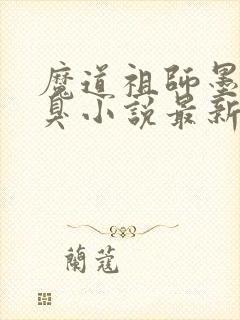 魔道祖師墨
臭小説最新
蘭蔻